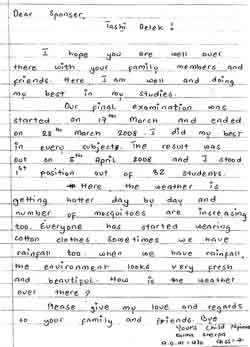 Dear Sponser,
Tashi Delek!
I hope you are well over
there with your family members and
friends. Here I am well and doing
my best in my studies.
Our final examination was
started on 17th March and ended
on 28th March 2008. I did my best
in every subjects. The result was
out on 5th April 2008 and I stood
1st position out of 32 students.
Here the weather is
getting hotter day by day and
number of mosquitoes are increasing
too. Everyone has started wearing
cotton clothes. Sometimes we have
rainfall too when we have rainfall,
the environment looks very fresh
and beautiful. How is the weather
over there?
Please give my love and regards
to your family and friends. Bye
Yours Child Nyima
sherpa